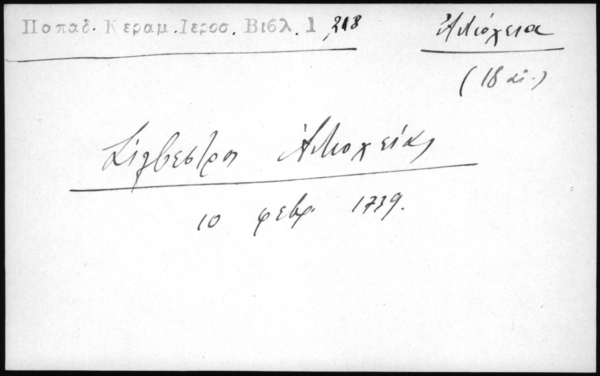 Παπαδ. Κεραμ. Ιεροσ. Βιβλ. 1, 218
Ἀντιόχεια
(18 αἰ.)
Σίλβεστρος Ἀντιοχείας
10 φεβρ. 1739.